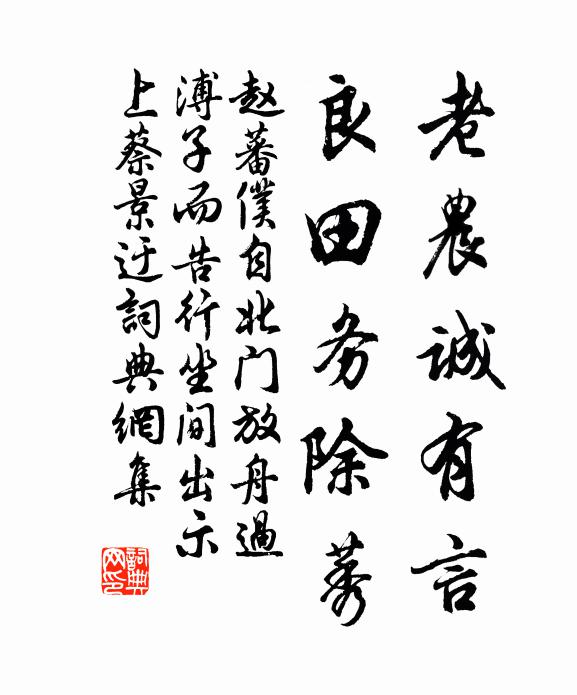 老農誠有言
良田务除莠
赵蕃僕自北门放舟過
溥子而告行坐间出示
上蔡景迂詞典網集
詞典网印